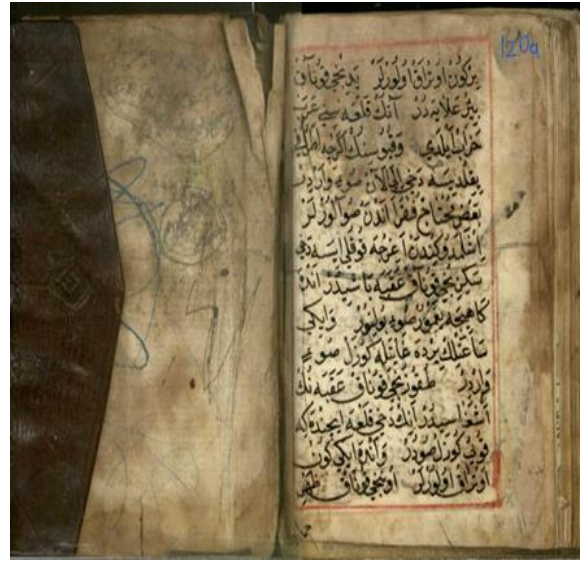 120a
بركون اوتراق اولورلر يدنجي قوناق
بئر علايه در آنك قلعه سي عرب
خراب ايلدي وقپوسنك اكرچه
يقلديسه دخي الى الان صويى واردر
بعض محتاج فقرا اندن صو آلورلر
قوقلى ايسه دخى
سكزنجي قوناق عقبه باشيدر اندن
كاهيجه يغمور صويى بولنور وايكي
ساعتلك يرده غائتله كوزل صويى
واردر طقوزنجي قوناق عقبه نك
اشغاسيدر انك دخي قلعه ايچنده كه
كوزل صودر وآنده ايكي كون
اوتراق اولورلر اوننجي قوناق ظهر